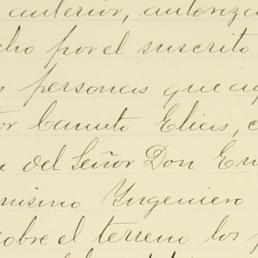 anterior, autoriza
cho por el suscrito
s personas que aq
or Canuto Elias, c
del Señor Don En
nisino Yngeniero
sobre el terreno los